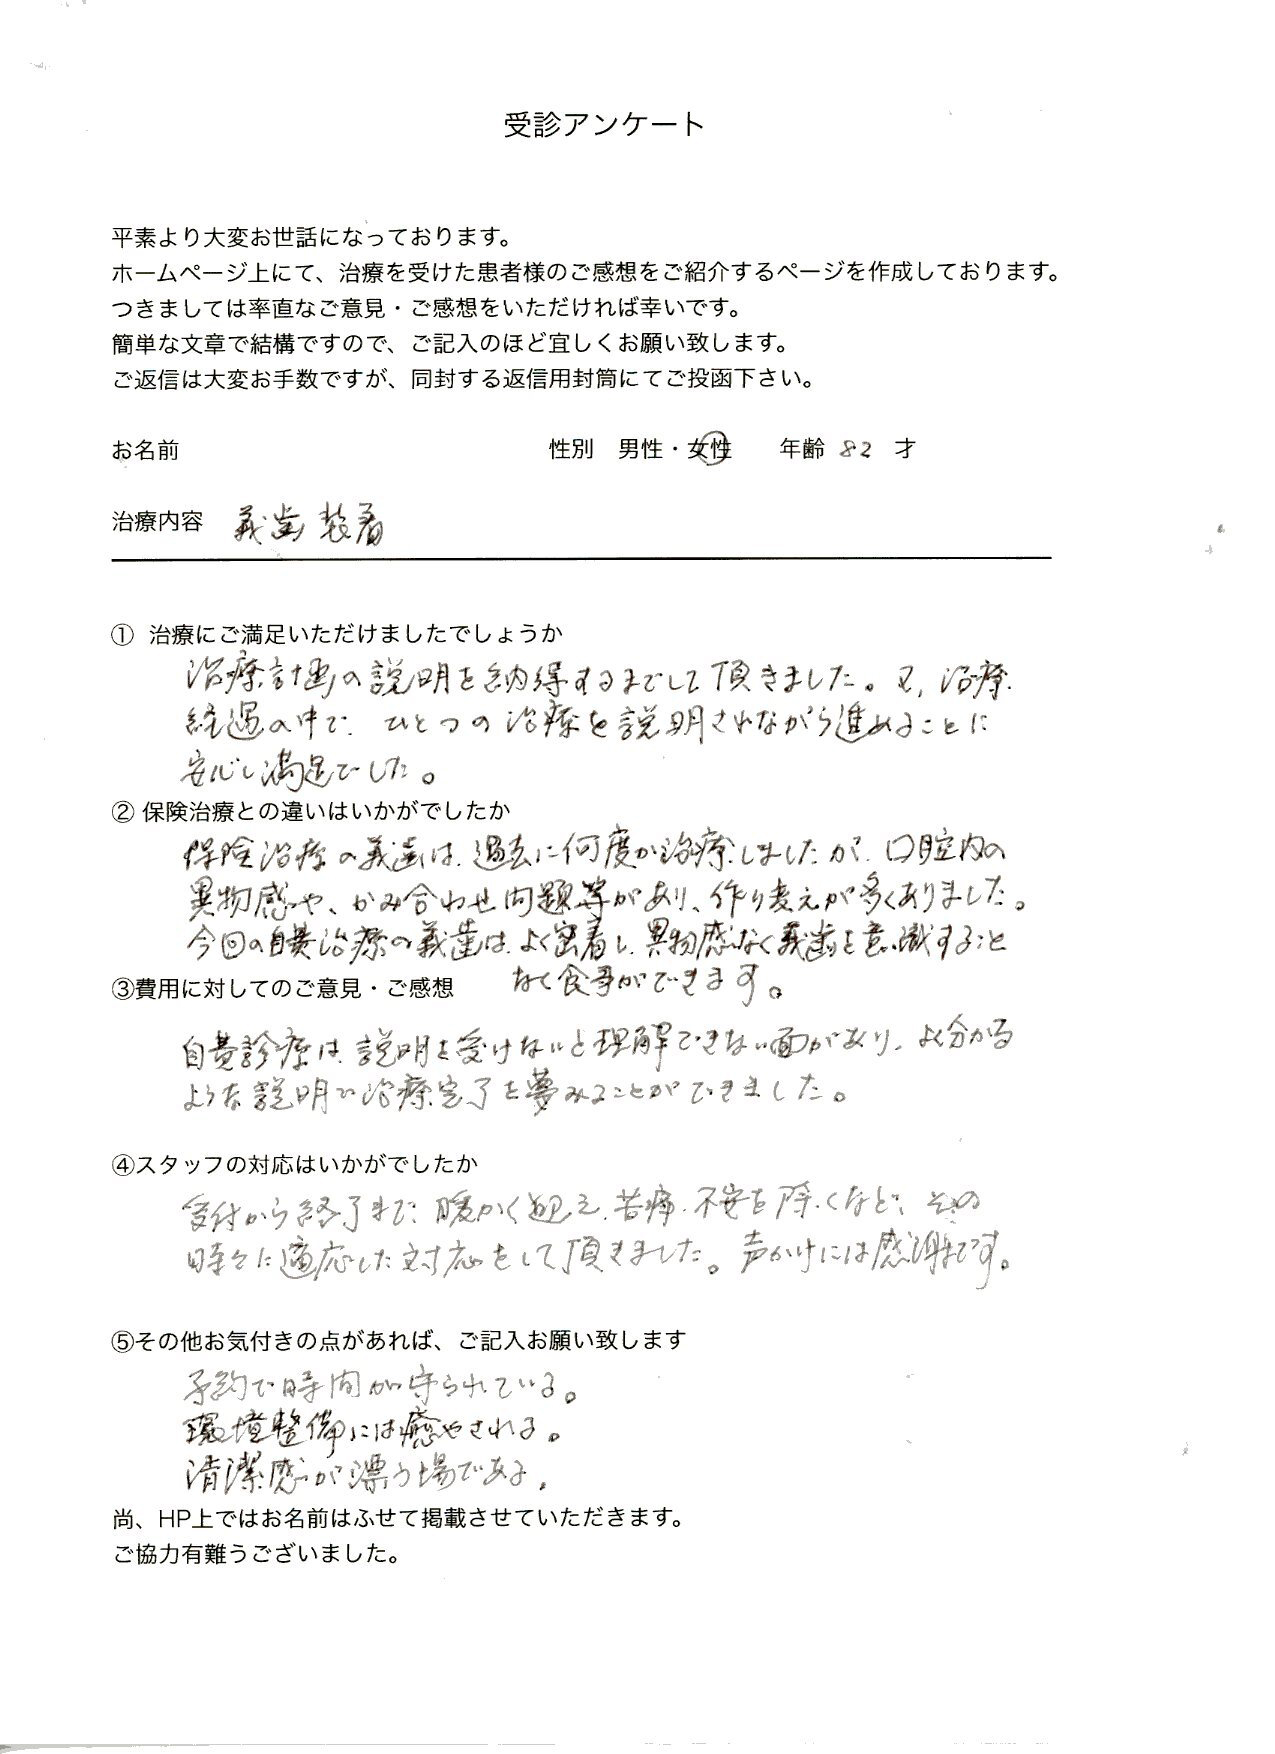 受診アンケート
平素より大変お世話になっております。
ホームページ上にて、治療を受けた患者様のご感想をご紹介するページを作成しております。
つきましては率直なご意見・ご感想をいただければ幸いです。
簡単な文章で結構ですので、ご記入のほど宜しくお願い致します。
ご返信は大変お手数ですが、同封する返信用封筒にてご投函下さい。
お名前 性別 男性・女性 年齢 82 才
治療内容 義歯装着
① 治療にご満足いただけましたでしょうか
治療計画の説明を納得するまでして頂きました。又、治療
経過の中で、ひとつの治療を説明されながら進めることに
安心し満足でした。
② 保険治療との違いはいかがでしたか
保険治療の義歯は、過去に何度か治療しましたが、口腔内の
異物感や、かみ合わせ問題等があり、作り変えが多くありました。
今回の自費治療の義歯は、よく密着し、異物感なく義歯を意識すること
なく食事ができます。
③費用に対してのご意見・ご感想
自費診療は、説明を受けないと理解できない面があり、よく分かる
ような説明で治療完了を夢みることができました。
④スタッフの対応はいかがでしたか
受付から終了まで、暖かく迎え、苦痛、不安を除くなど、その
時々に適応した対応をして頂きました。声かけには感謝です。
⑤その他お気付きの点があれば、ご記入お願い致します
予約で時間が守られている。
環境整備には癒やされる。
清潔感が漂う場である。
尚、HP上ではお名前はふせて掲載させていただきます。
ご協力有難うございました。